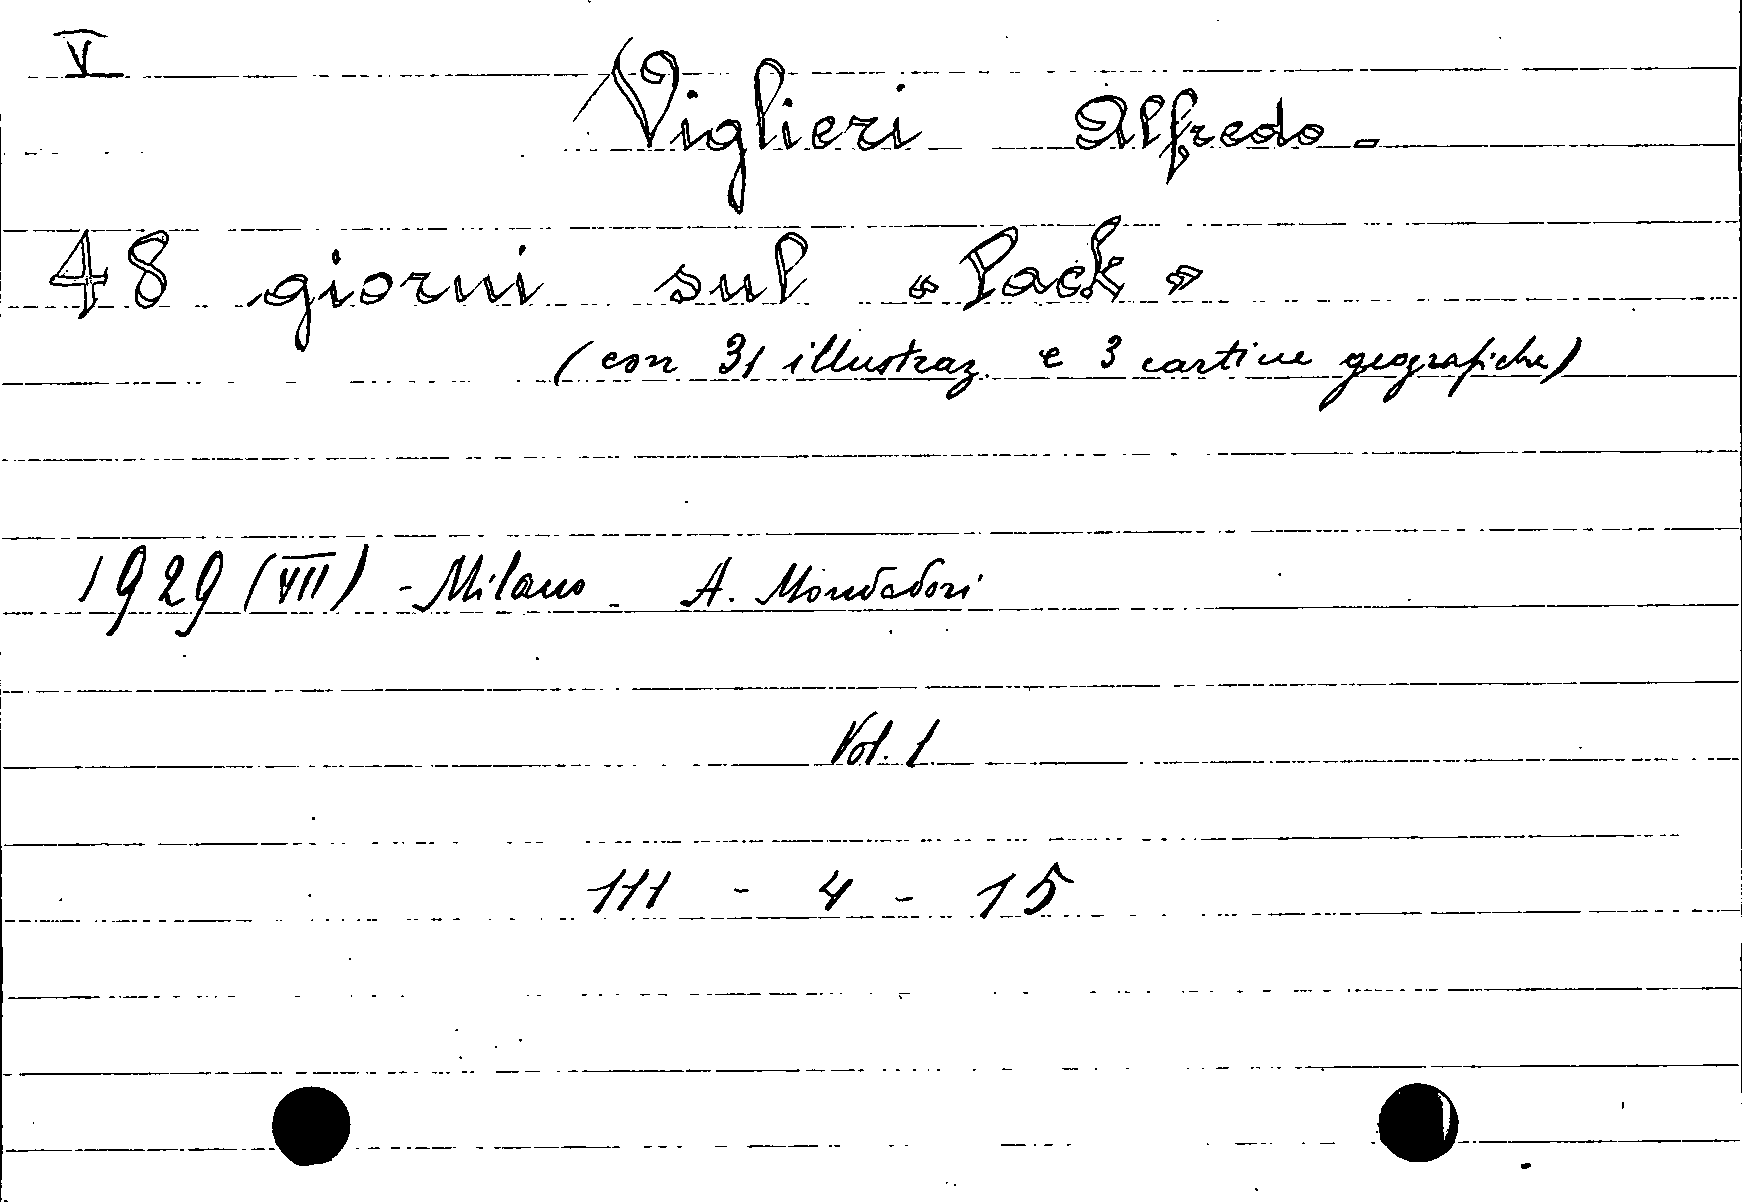 V
Viglieri Alfredo -
48 giorni sul « Pack »
(con 31 illustraz. e 3 cartine geografiche)
1929 (VII) - Milano - A. Mondadori
Vol. 1
III - 4 - 15